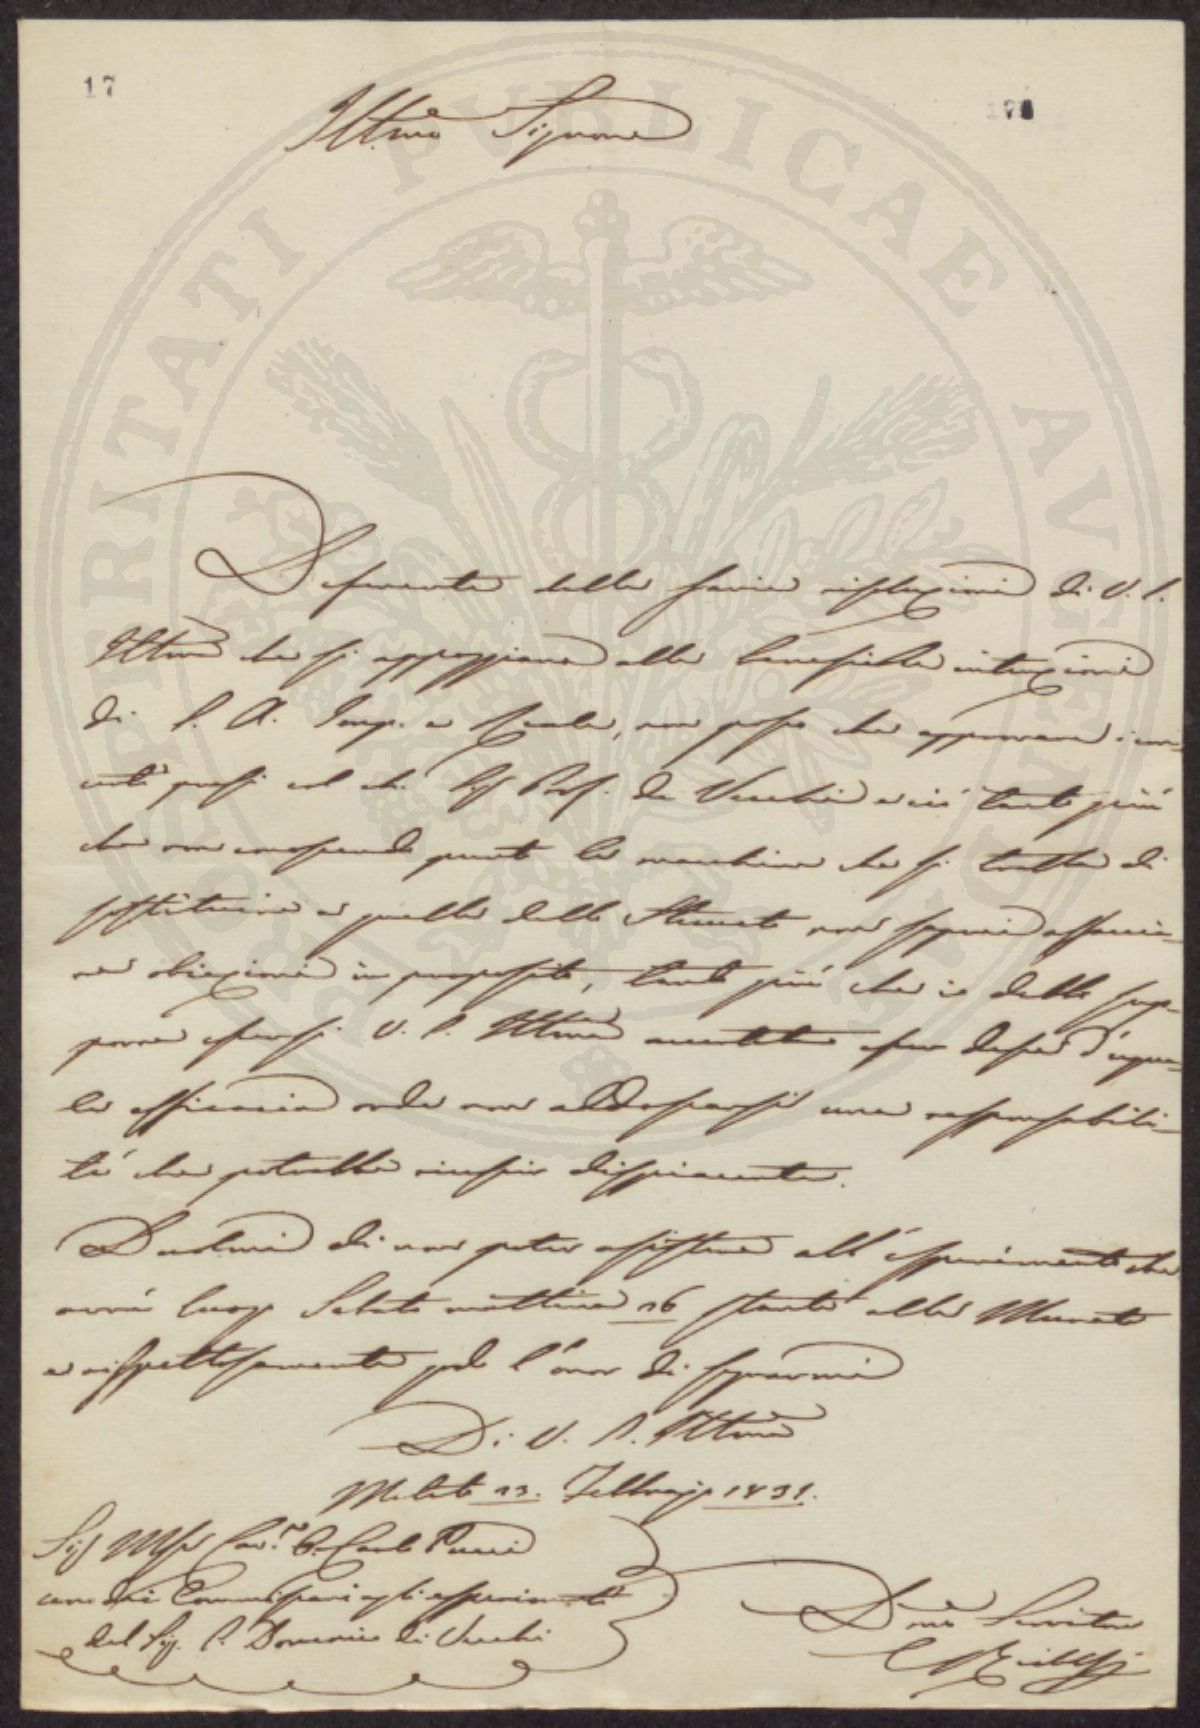 17
Illmo Signore
PROSPERITATI PUBLICAE AVGENDAE
Deferente delle savie riflessioni di V. S.
Illma che si appoggiano alle benefiche intenzioni
di S. A. Imp. e Reale, non posso che approvare i con-
certi presi col ch. Sig Prof. de Vecchi e ciò tanto più
che non conoscendo punto la macchina che si tratta di
sostituire a quella dello Stewart non saprei affaccia-
re obiezioni in proposito, tanto più che io debbo sup-
porre essersi V. S. Illma accertata esser dessa d'egua-
le efficacia onde non addossarsi una responsabili-
tà che potrebbe riuscir dispiacente.
Duolmi di non poter assistere all'esperimento che
avrà luogo Sabato mattina stante alle
e rispettosamente ho l'onor di segnarmi
Di V. S. Illma
13. Febbrajo 1831.
Sig Cav.re Carlo Pucci
uno dei Commissari agli esperimenti
del Sig. P. Domenico de Vecchi
Devmo Servitore
C Ridolfi